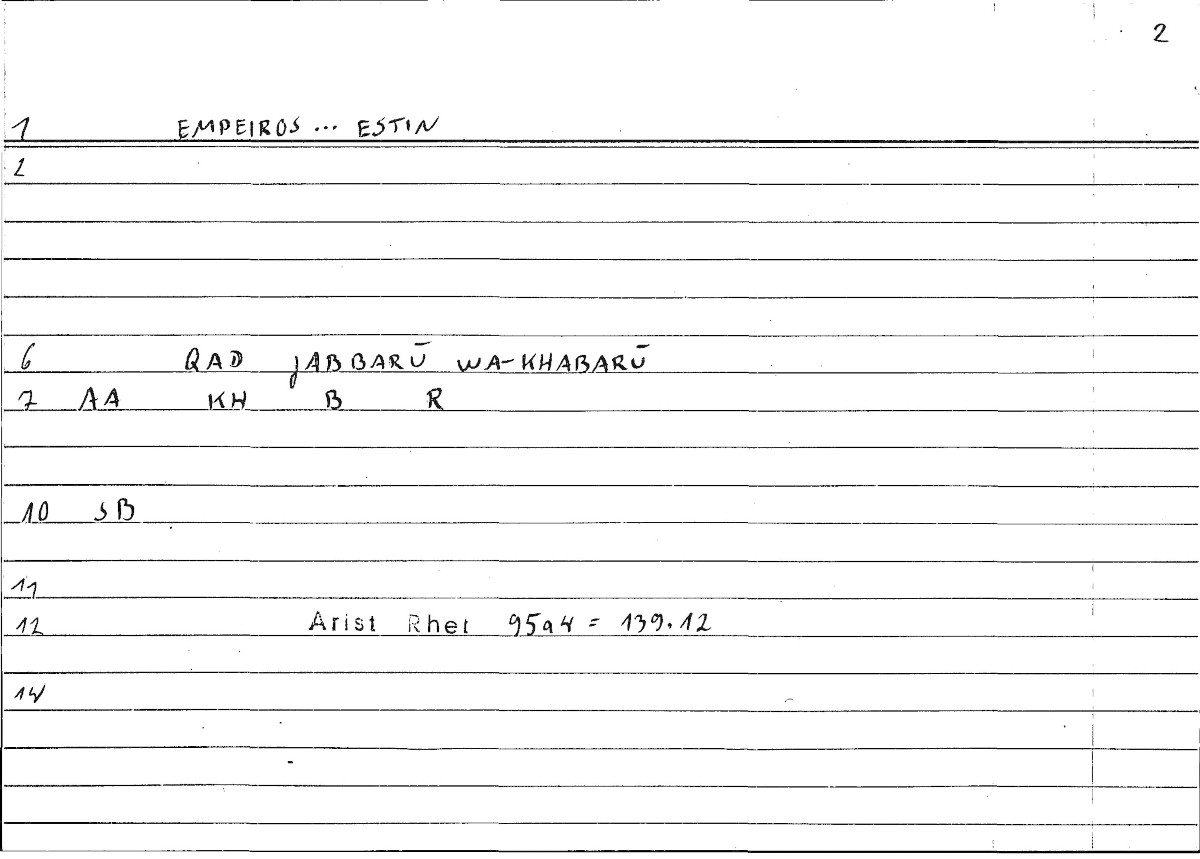 2
1 EMPEIROS ... ESTIN
2
6 QAD JABBARŪ WA-KHABARŪ
7 AA KH B R
10 SB
11
12 Arist Rhet 95a4 = 139.12
14